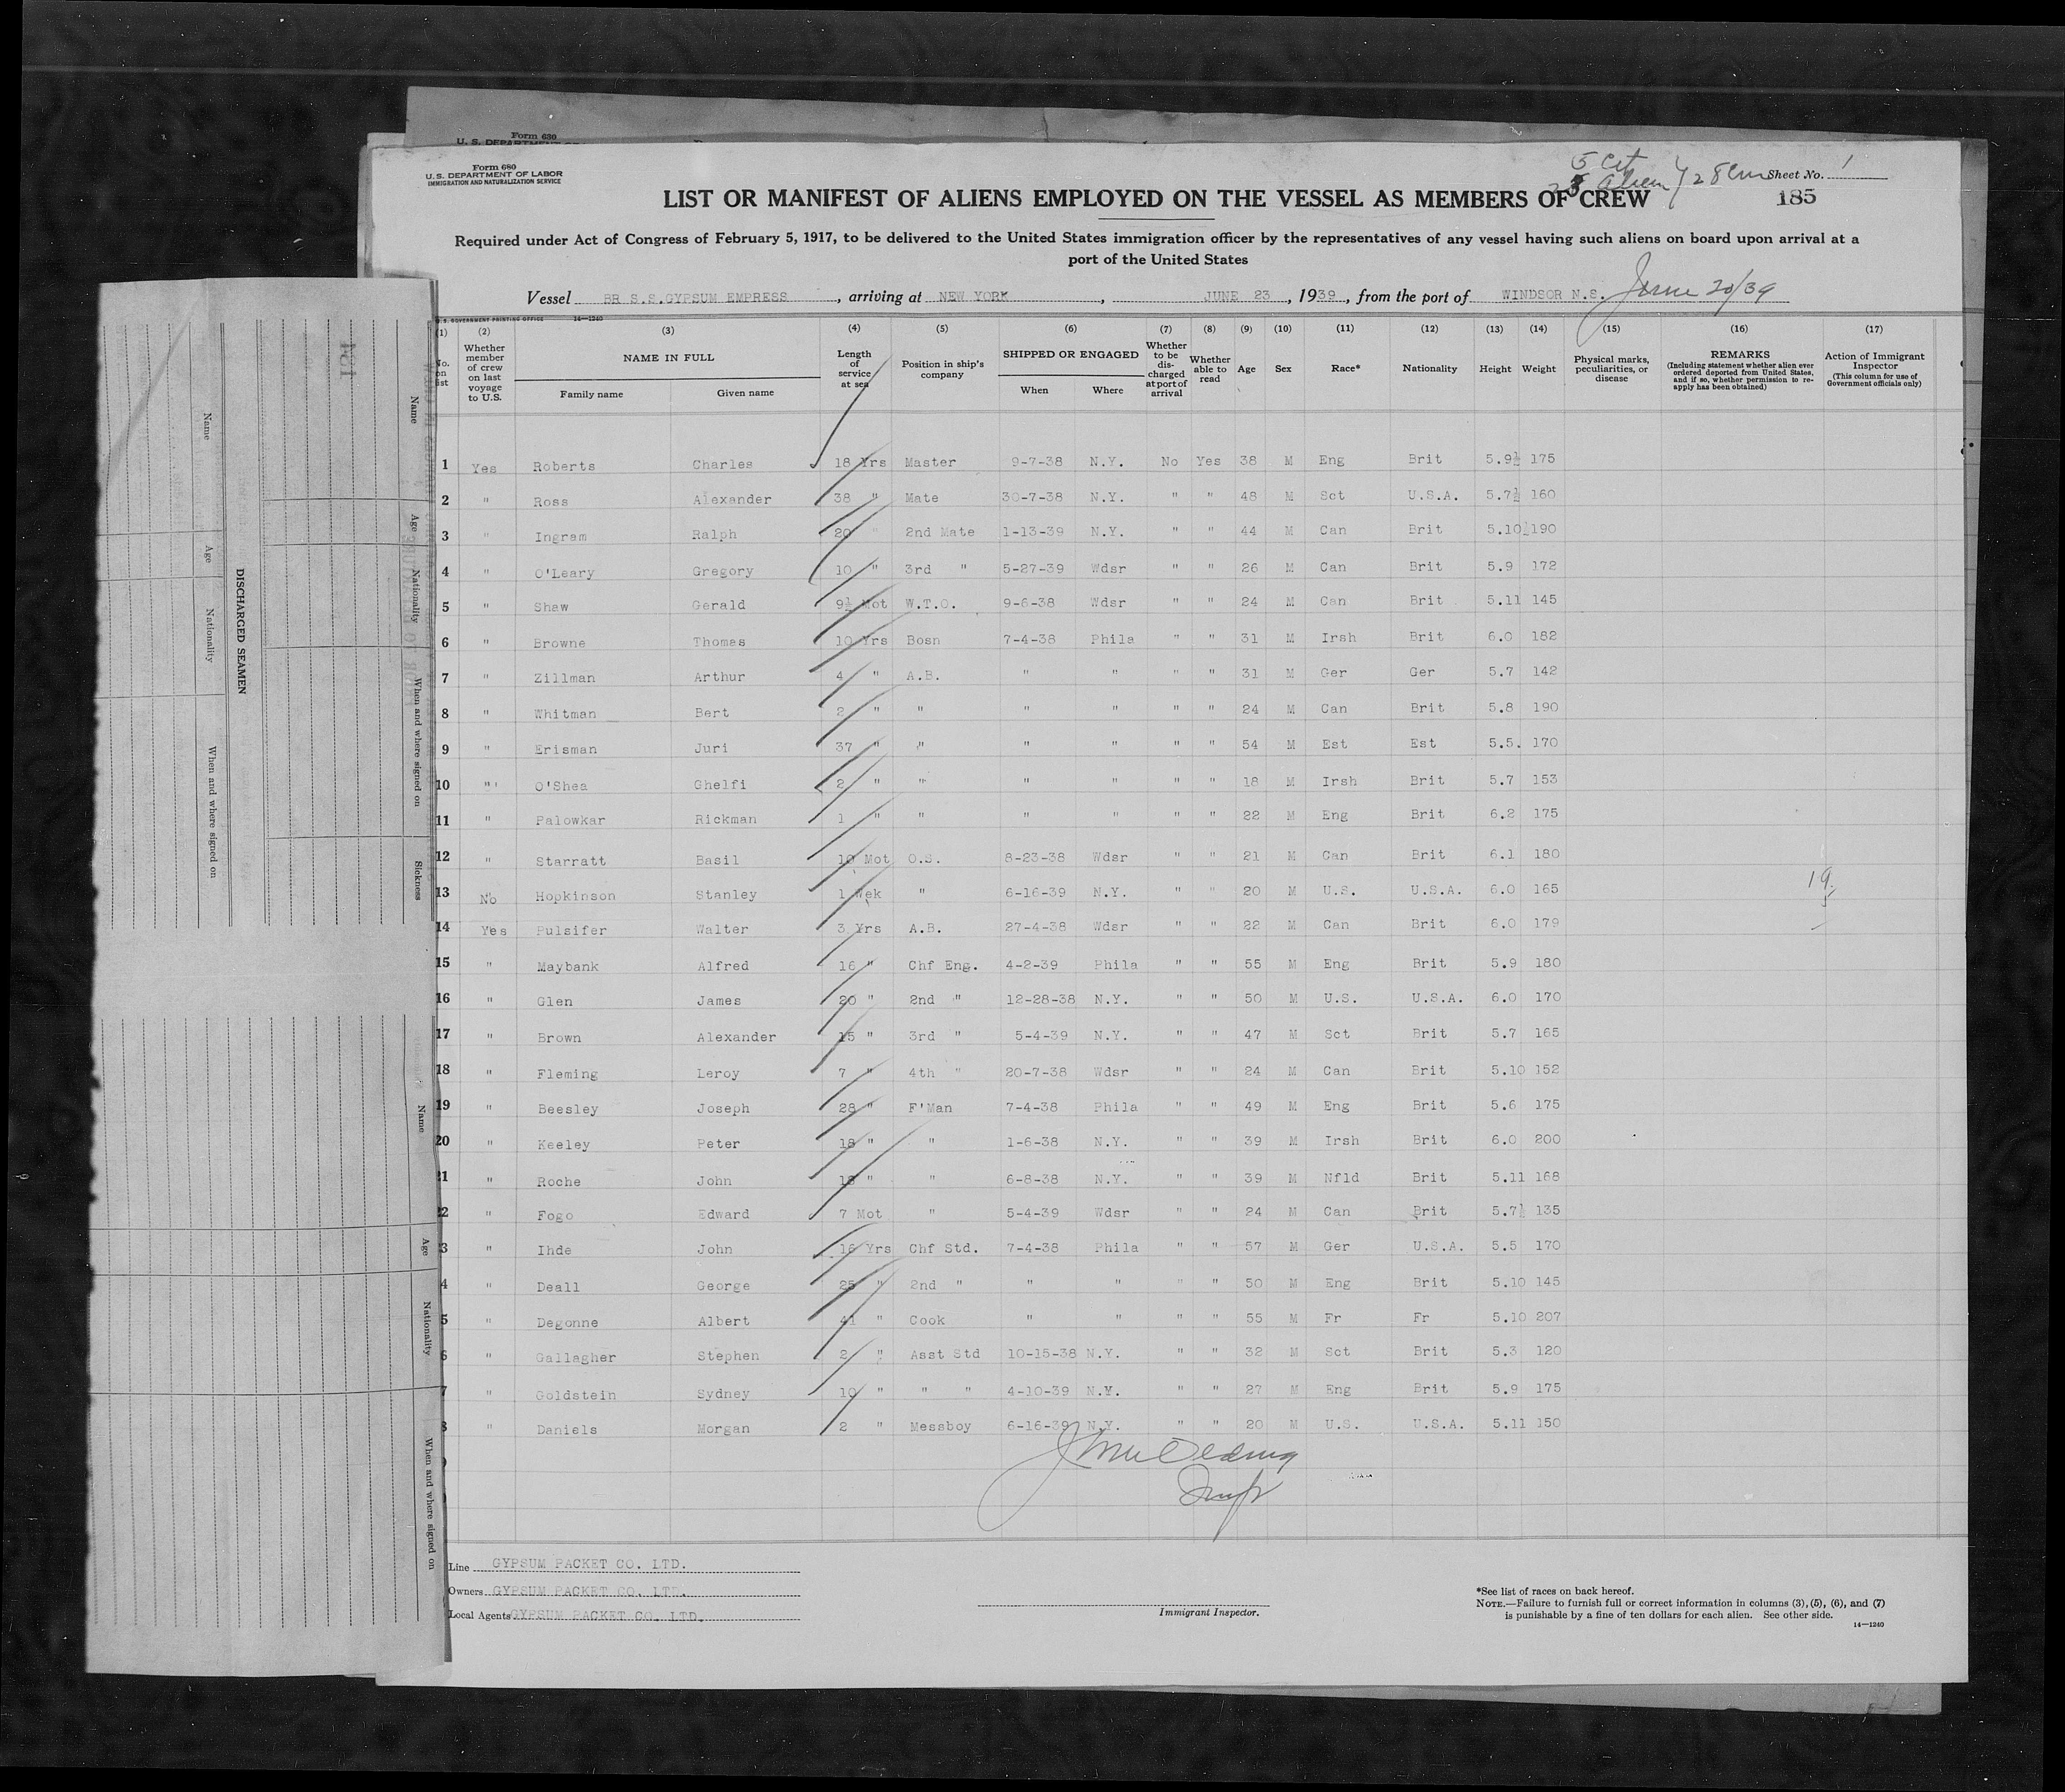 Form 630
U. S. DEPARTMENT OF
Form 680
U. S. DEPARTMENT OF LABOR
IMMIGRATION AND NATURALIZATION SERVICE
5 cit
alien 28 Sheet No. 1
LIST OR MANIFEST OF ALIENS EMPLOYED ON THE VESSEL AS MEMBERS OF CREW
185
Required under Act of Congress of February 5, 1917, to be delivered to the United States immigration officer by the representatives of any vessel having such aliens on board upon arrival at a
port of the United States
Vessel BR S.S.GYPSUM EMPRESS, arriving at NEW YORK, JUNE 23, 1939, from the port of WINDSOR N.S. June 20/39
U.S. GOVERNMENT PRINTING OFFICE 14—1240
(1) (2) (3) (4) (5) (6) (7) (8) (9) (10) (11) (12) (13) (14) (15) (16) (17)
No. on list
Whether member of crew on last voyage to U.S.
NAME IN FULL
Family name Given name
Length of service at sea
Position in ship's company
SHIPPED OR ENGAGED
When Where
Whether to be discharged at port of arrival
Whether able to read
Age Sex Race* Nationality Height Weight
Physical marks, peculiarities, or disease
REMARKS
(Including statement whether alien ever ordered deported from United States, and if so, whether permission to reapply has been obtained)
Action of Immigrant Inspector
(This column for use of Government officials only)
1 Yes Roberts Charles 18 Yrs Master 9-7-38 N.Y. No Yes 38 M Eng Brit 5.9½ 175
2 " Ross Alexander 38 " Mate 30-7-38 N.Y. " " 48 M Sct U.S.A. 5.7½ 160
3 " Ingram Ralph 20 " 2nd Mate 1-13-39 N.Y. " " 44 M Can Brit 5.10½ 190
4 " O'Leary Gregory 10 " 3rd " 5-27-39 Wdsr " " 26 M Can Brit 5.9 172
5 " Shaw Gerald 9½ Mot W.T.O. 9-6-38 Wdsr " " 24 M Can Brit 5.11 145
6 " Browne Thomas 10 Yrs Bosn 7-4-38 Phila " " 31 M Irsh Brit 6.0 182
7 " Zillman Arthur 4 " A.B. " " " " 31 M Ger Ger 5.7 142
8 " Whitman Bert 2 " " " " " " 24 M Can Brit 5.8 190
9 " Erisman Juri 37 " " " " " " 54 M Est Est 5.5. 170
10 " O'Shea Ghelfi 2 " " " " " " 18 M Irsh Brit 5.7 153
11 " Palowkar Rickman 1 " " " " " " 22 M Eng Brit 6.2 175
12 " Starratt Basil 10 Mot O.S. 8-23-38 Wdsr " " 21 M Can Brit 6.1 180
13 No Hopkinson Stanley 1 Wek " 6-16-39 N.Y. " " 20 M U.S. U.S.A. 6.0 165
14 Yes Pulsifer Walter 3 Yrs A.B. 27-4-38 Wdsr " " 22 M Can Brit 6.0 179
15 " Maybank Alfred 16 " Chf Eng. 4-2-39 Phila " " 55 M Eng Brit 5.9 180
16 " Glen James 20 " 2nd " 12-28-38 N.Y. " " 50 M U.S. U.S.A. 6.0 170
17 " Brown Alexander 15 " 3rd " 5-4-39 N.Y. " " 47 M Sct Brit 5.7 165
18 " Fleming Leroy 7 " 4th " 20-7-38 Wdsr " " 24 M Can Brit 5.10 152
19 " Beesley Joseph 28 " F'Man 7-4-38 Phila " " 49 M Eng Brit 5.6 175
20 " Keeley Peter 18 " " 1-6-38 N.Y. " " 39 M Irsh Brit 6.0 200
21 " Roche John 18 " " 6-8-38 N.Y. " " 39 M Nfld Brit 5.11 168
2 " Fogo Edward 7 Mot " 5-4-39 Wdsr " " 24 M Can Brit 5.7½ 135
3 " Ihde John 16 Yrs Chf Std. 7-4-38 Phila " " 57 M Ger U.S.A. 5.5 170
4 " Deall George 25 " 2nd " " " " " 50 M Eng Brit 5.10 145
5 " Degonne Albert 41 " Cook " " " " 55 M Fr Fr 5.10 207
6 " Gallagher Stephen 2 " Asst Std 10-15-38 N.Y. " " 32 M Sct Brit 5.3 120
7 " Goldstein Sydney 10 " " " 4-10-39 N.Y. " " 27 M Eng Brit 5.9 175
8 " Daniels Morgan 2 " Messboy 6-16-39 N.Y. " " 20 M U.S. U.S.A. 5.11 150
19
5
Line GYPSUM PACKET CO. LTD.
Owners GYPSUM PACKET CO. LTD.
Local Agents GYPSUM PACKET CO. LTD.
Immigrant Inspector.
*See list of races on back hereof.
NOTE.—Failure to furnish full or correct information in columns (3), (5), (6), and (7)
is punishable by a fine of ten dollars for each alien. See other side.
14—1240
184
DISCHARGED SEAMEN
Name Age Nationality When and where signed on
Name Age Nationality When and where signed on Sickness
Name Age Nationality When and where signed on